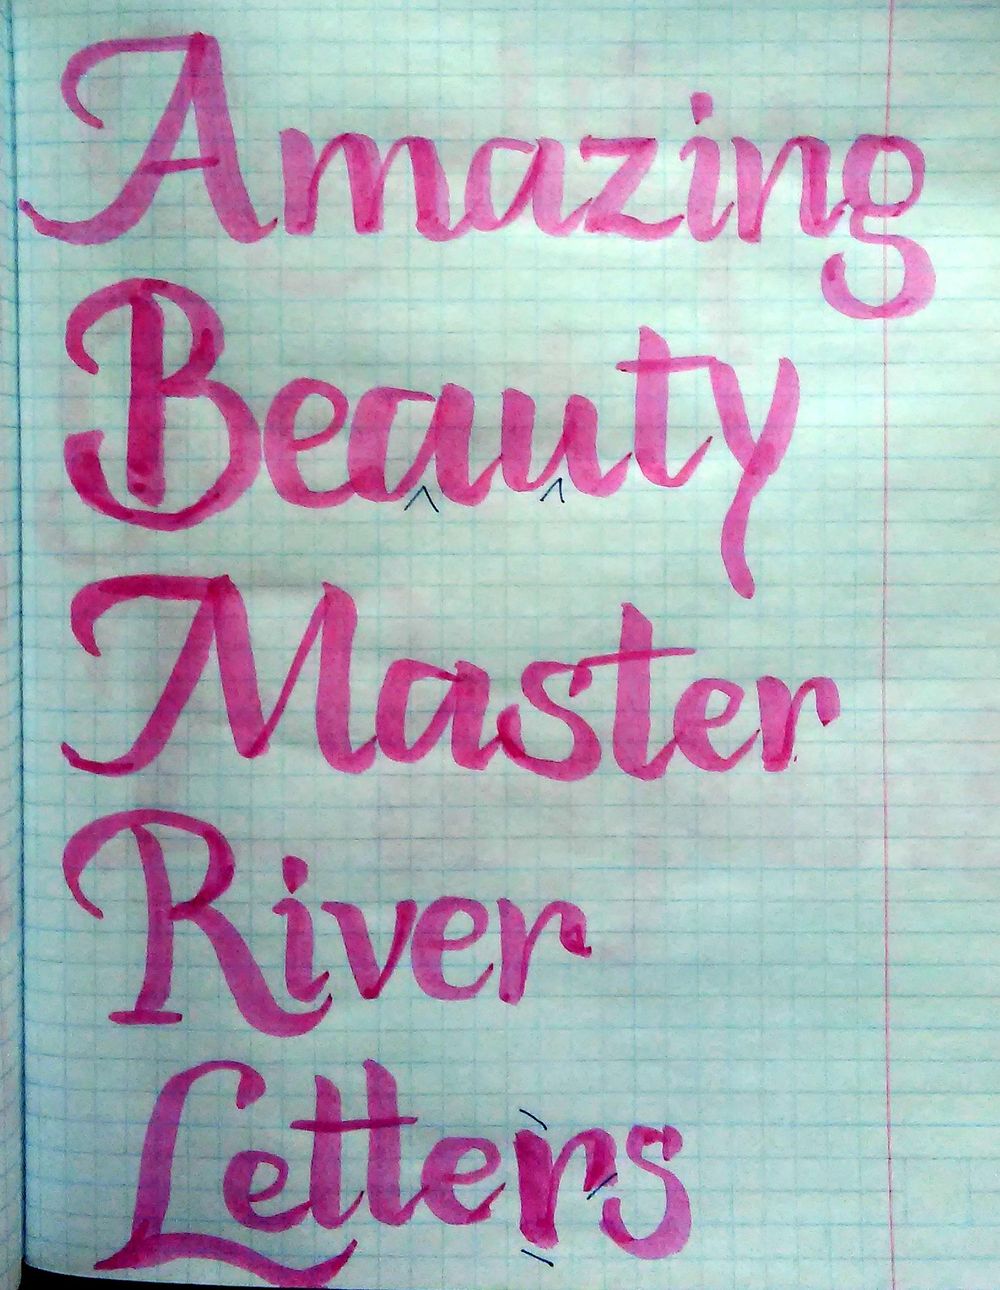 Amazing
Beauty
Master
River
Letters